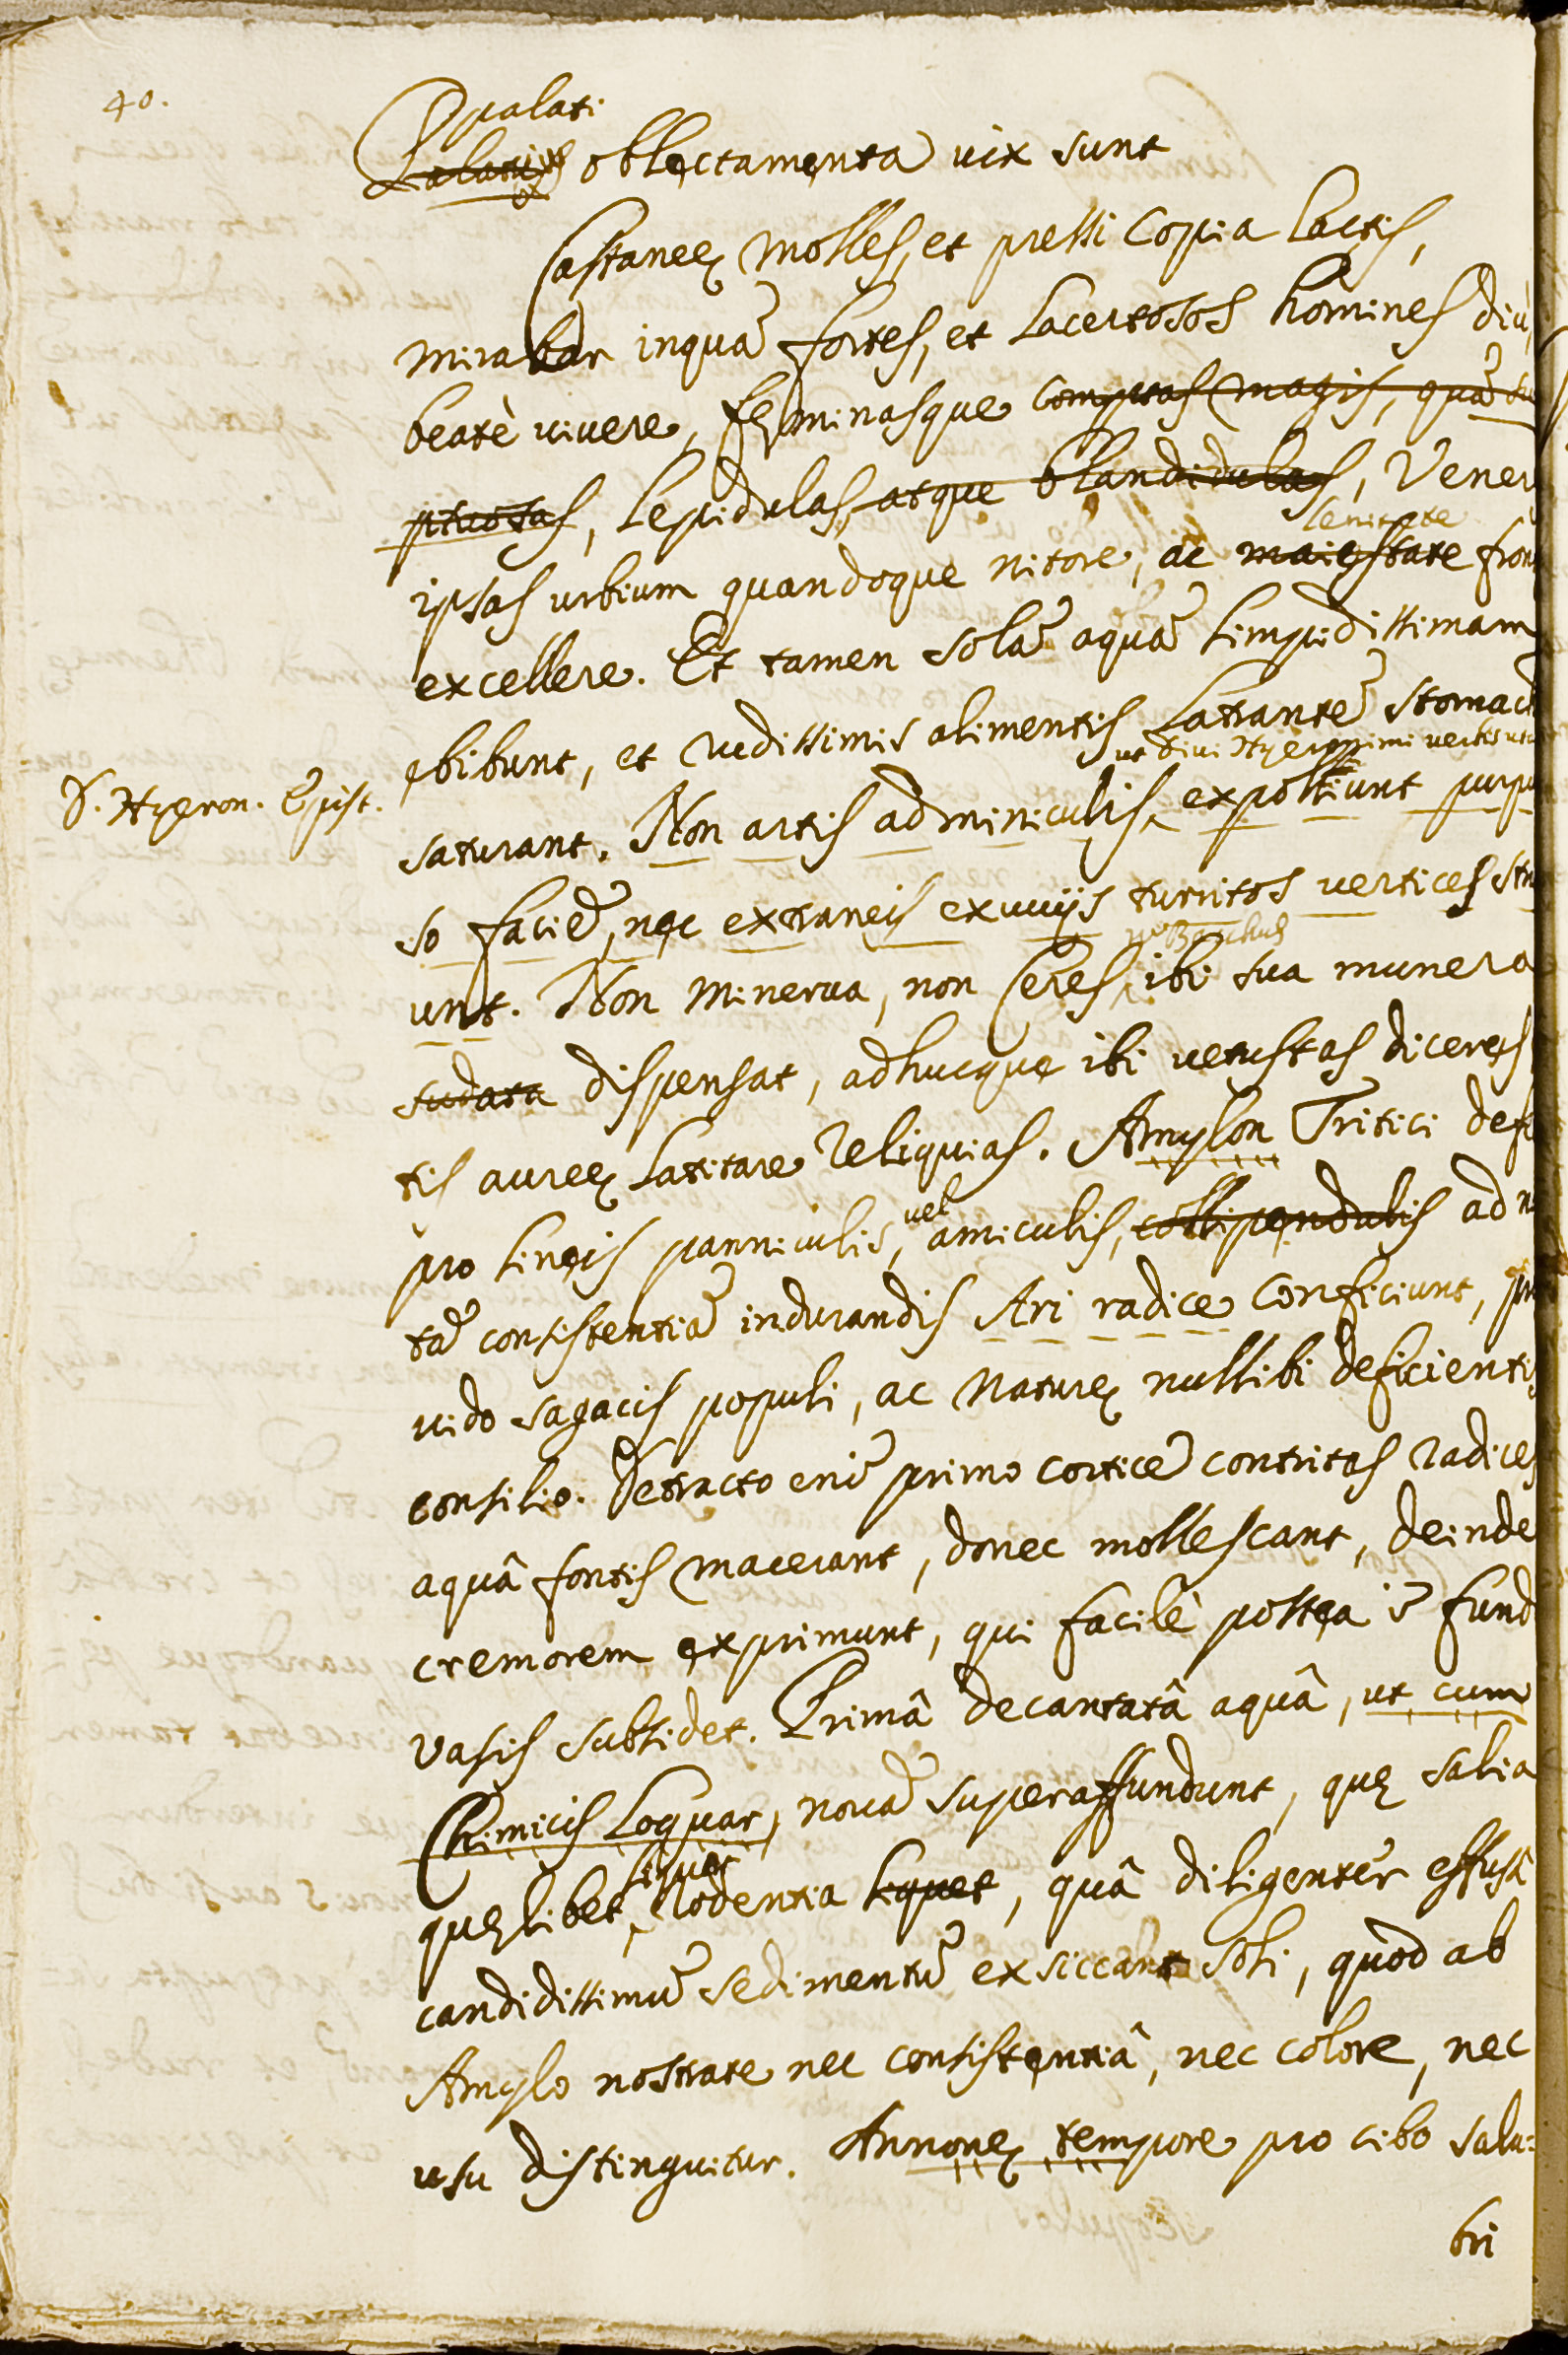 40.
palati
Palatiq oblectamenta vix sunt
Castaneę molles, et pressi copia lactis,
mirabar inquā fortes, et lacertosos homines diù,
beatè vivere, fęminasque comptas magis, quā su
ptuosas, lepidulas, atque blandidulas, Vener
lenitate
ipsas urbium quandoque nitore, ac maiestate fron
excellere. Et tamen solā aquā limpidissimam
ebibunt, et rudissimis alimentis latrantē stomacū
ut divi Hyeronimi verbis utar
D. Hyeron. Epist.
saturant. Non artis adminiculis, expoliunt purpu
so faciē, nec extraneis exuvijs turritos vertices stru
nō Bacchus
unt. Non Minerva, non Ceres, ibi sua munera
sudata dispensat, adhucque ibi vetustas diceres
tis aureę latitare reliquias. Amylon Tritici defe
vel
pro lineis panniculis, amiculis, collipendulis ad n
tā consistentiā indurandis Ari radice conficiunt, pro
vido sagacis populi, ac Naturę nullibi deficientis
consilio. Detracto enī primo cortice contritas radices
aquâ fontis macerant, donec mollescant, deinde
cremorem exprimunt, qui facilè postea ī fund
vasis subsidet. Primâ decantatâ aquâ, ut cum
Chimicis loquar, novā superaffundunt, quę salia
liquet
quęlibet, rodentia liquet, quâ diligentèr effusâ
candidissimū sedimentū exsiccant soli, quòd ab
Amylo nostrate nec consistentiâ, nec colore, nec
usu distinguitur. Annonę tempore pro cibo salu:
bri